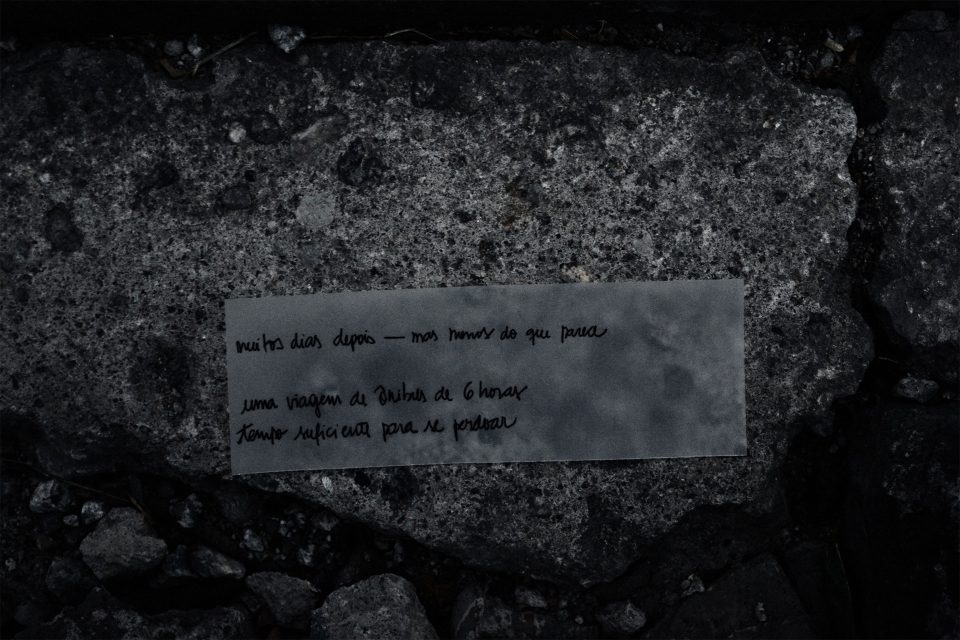 muitos dias depois — mas menos do que parece
uma viagem de ônibus de 6 horas
tempo suficiente para se perdoar